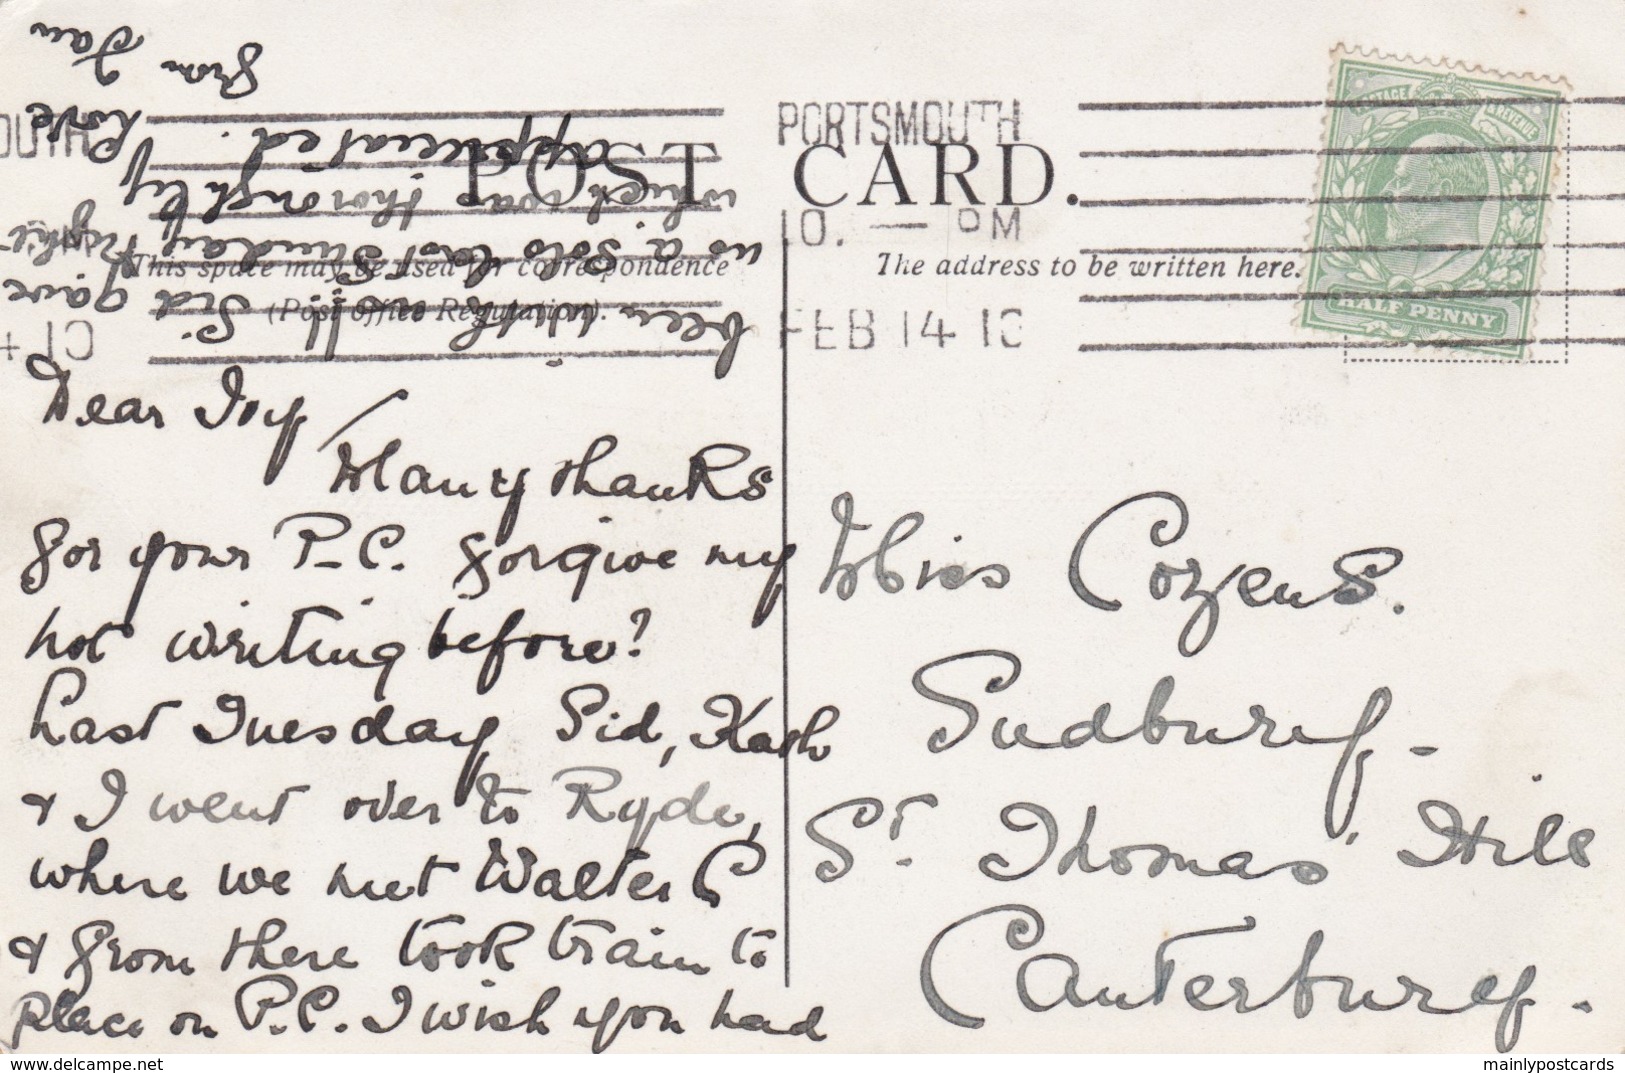 POST CARD.
This space may be used for correspondence
(Post office Regulation).
The address to be written here.
PORTSMOUTH
10. — PM
FEB 14 10
OUTH
+ 10
POSTAGE & REVENUE
HALF PENNY
Dear Ivy
Many thanks
for your P.C. forgive my
not writing before?
Last Tuesday Sid, Kath
& I went over to Ryde,
where we met Walter C
& from there took train to
place on P.C. I wish you had
been with us!! Sid gave
us a Solo last Sunday
which was thoroughly
appreciated. Love
from
Miss Cozens.
Sudbury -
St. Thomas' Hill
Canterbury.
mainlypostcards.delcampe.net
mainlypostcards